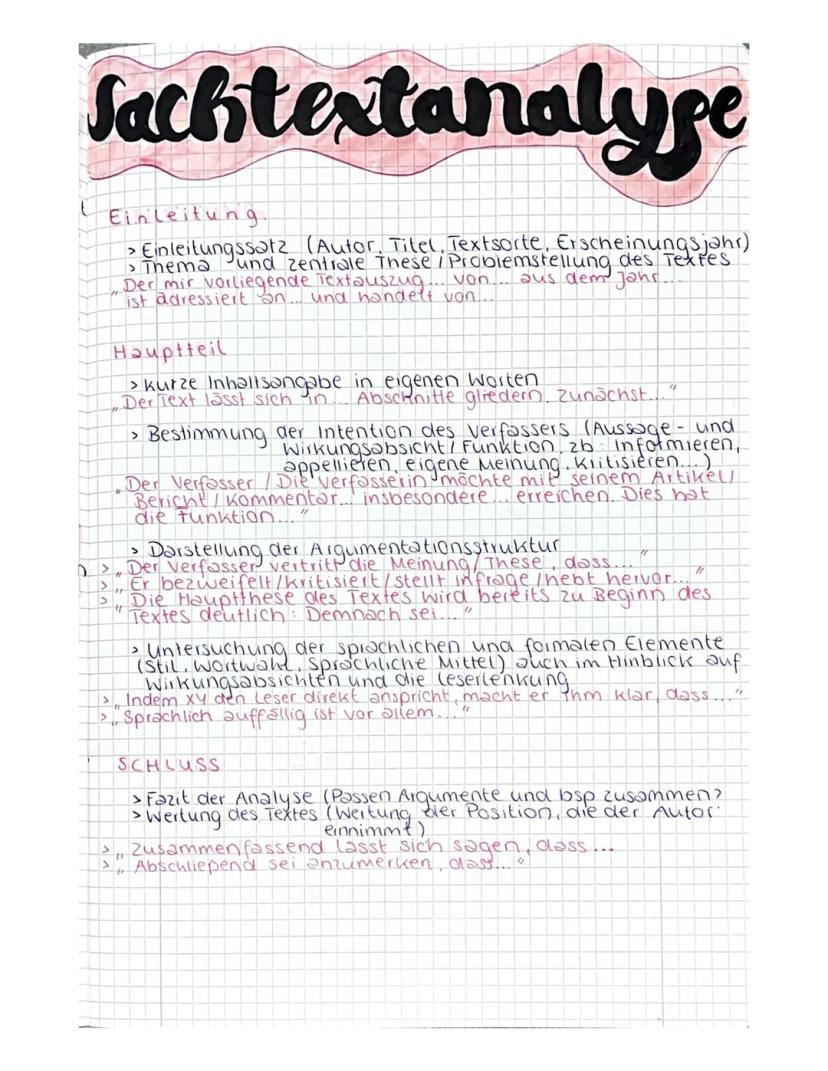 Sachtextanalyse
Einleitung
> Einleitungssatz (Autor, Titel, Textsorte, Erscheinungsjahr)
> Thema und zentrale These / Problemstellung des Textes
„Der mir vorliegende Textauszug... von... aus dem Jahr...
ist adressiert an... und handelt von...
Hauptteil
> kurze Inhaltsangabe in eigenen Worten
„Der Text lässt sich in... Abschnitte gliedern. Zunächst..."
> Bestimmung der Intention des Verfassers (Aussage- und
Wirkungsabsicht / Funktion, zb: Informieren,
appellieren, eigene Meinung, kritisieren...)
„Der Verfasser / Die Verfasserin möchte mit seinem Artikel /
Bericht / Kommentar... insbesondere... erreichen. Dies hat
die Funktion..."
> Darstellung der Argumentationsstruktur
> „Der Verfasser vertritt die Meinung / These, dass..."
> „Er bezweifelt / kritisiert / stellt infrage / hebt hervor..."
> „Die Hauptthese des Textes wird bereits zu Beginn des
Textes deutlich: Demnach sei..."
> Untersuchung der sprachlichen und formalen Elemente
(Stil, Wortwahl, Sprachliche Mittel) auch im Hinblick auf
Wirkungsabsichten und die Leserlenkung
> „Indem XY den Leser direkt anspricht, macht er ihm klar, dass..."
> „Sprachlich auffällig ist vor allem..."
SCHLUSS
> Fazit der Analyse (Passen Argumente und bsp zusammen?
> Wertung des Textes (Wertung der Position, die der Autor
einnimmt)
> „Zusammenfassend lässt sich sagen, dass...
> „Abschließend sei anzumerken, dass..."